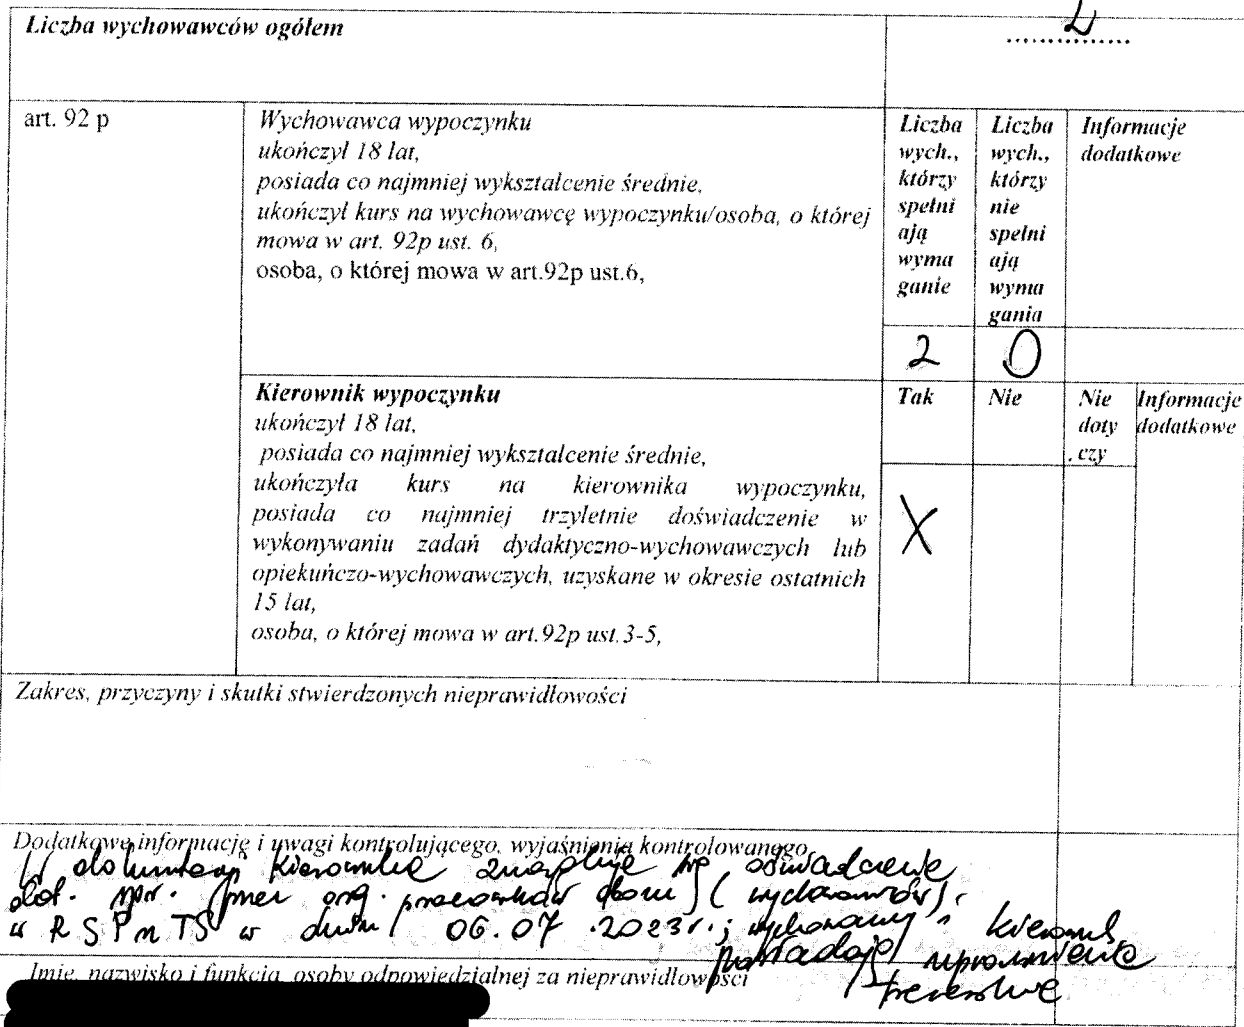 Liczba wychowawców ogółem
2
art. 92 p
Wychowawca wypoczynku
ukończył 18 lat,
posiada co najmniej wykształcenie średnie,
ukończył kurs na wychowawcę wypoczynku/osoba, o której
mowa w art. 92p ust. 6,
osoba, o której mowa w art.92p ust.6,
Liczba
wych.,
którzy
spełni
ają
wyma
ganie
Liczba
wych.,
którzy
nie
spełni
ają
wyma
gania
Informacje
dodatkowe
2
0
Kierownik wypoczynku
ukończył 18 lat,
posiada co najmniej wykształcenie średnie,
ukończyła kurs na kierownika wypoczynku,
posiada co najmniej trzyletnie doświadczenie w
wykonywaniu zadań dydaktyczno-wychowawczych lub
opiekuńczo-wychowawczych, uzyskane w okresie ostatnich
15 lat,
osoba, o której mowa w art.92p ust.3-5,
Tak
Nie
Nie
doty
czy
Informacje
dodatkowe
X
Zakres, przyczyny i skutki stwierdzonych nieprawidłowości
Dodatkowe informacje i uwagi kontrolującego, wyjaśnienia kontrolowanego
W kierownika znajduje się oświadczenie
dot. spr. przez org. pracowników
w RSPnTS w dniu 06.07.2023r.; wychowawcy i kierownik
posiadają uprawnienia
Imię, nazwisko i funkcja osoby odpowiedzialnej za nieprawidłowości